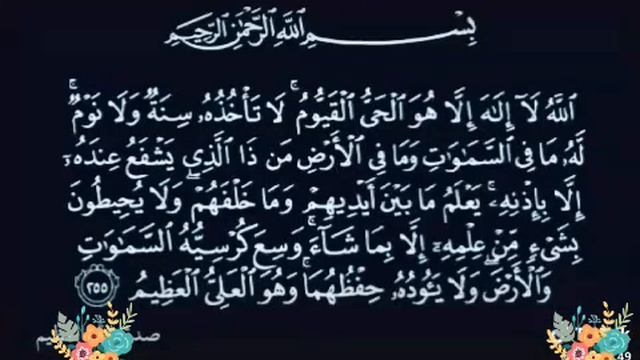 بِسْمِ اللَّهِ الرَّحْمَٰنِ الرَّحِيمِ
اللَّهُ لَا إِلَٰهَ إِلَّا هُوَ الْحَيُّ الْقَيُّومُ ۚ لَا تَأْخُذُهُ سِنَةٌ وَلَا نَوْمٌ ۚ
لَّهُ مَا فِي السَّمَاوَاتِ وَمَا فِي الْأَرْضِ مَن ذَا الَّذِي يَشْفَعُ عِندَهُ
إِلَّا بِإِذْنِهِ ۚ يَعْلَمُ مَا بَيْنَ أَيْدِيهِمْ وَمَا خَلْفَهُمْ ۖ وَلَا يُحِيطُونَ
بِشَيْءٍ مِّنْ عِلْمِهِ إِلَّا بِمَا شَاءَ ۚ وَسِعَ كُرْسِيُّهُ السَّمَاوَاتِ
وَالْأَرْضَ ۖ وَلَا يَئُودُهُ حِفْظُهُمَا ۚ وَهُوَ الْعَلِيُّ الْعَظِيمُ ٢٥٥